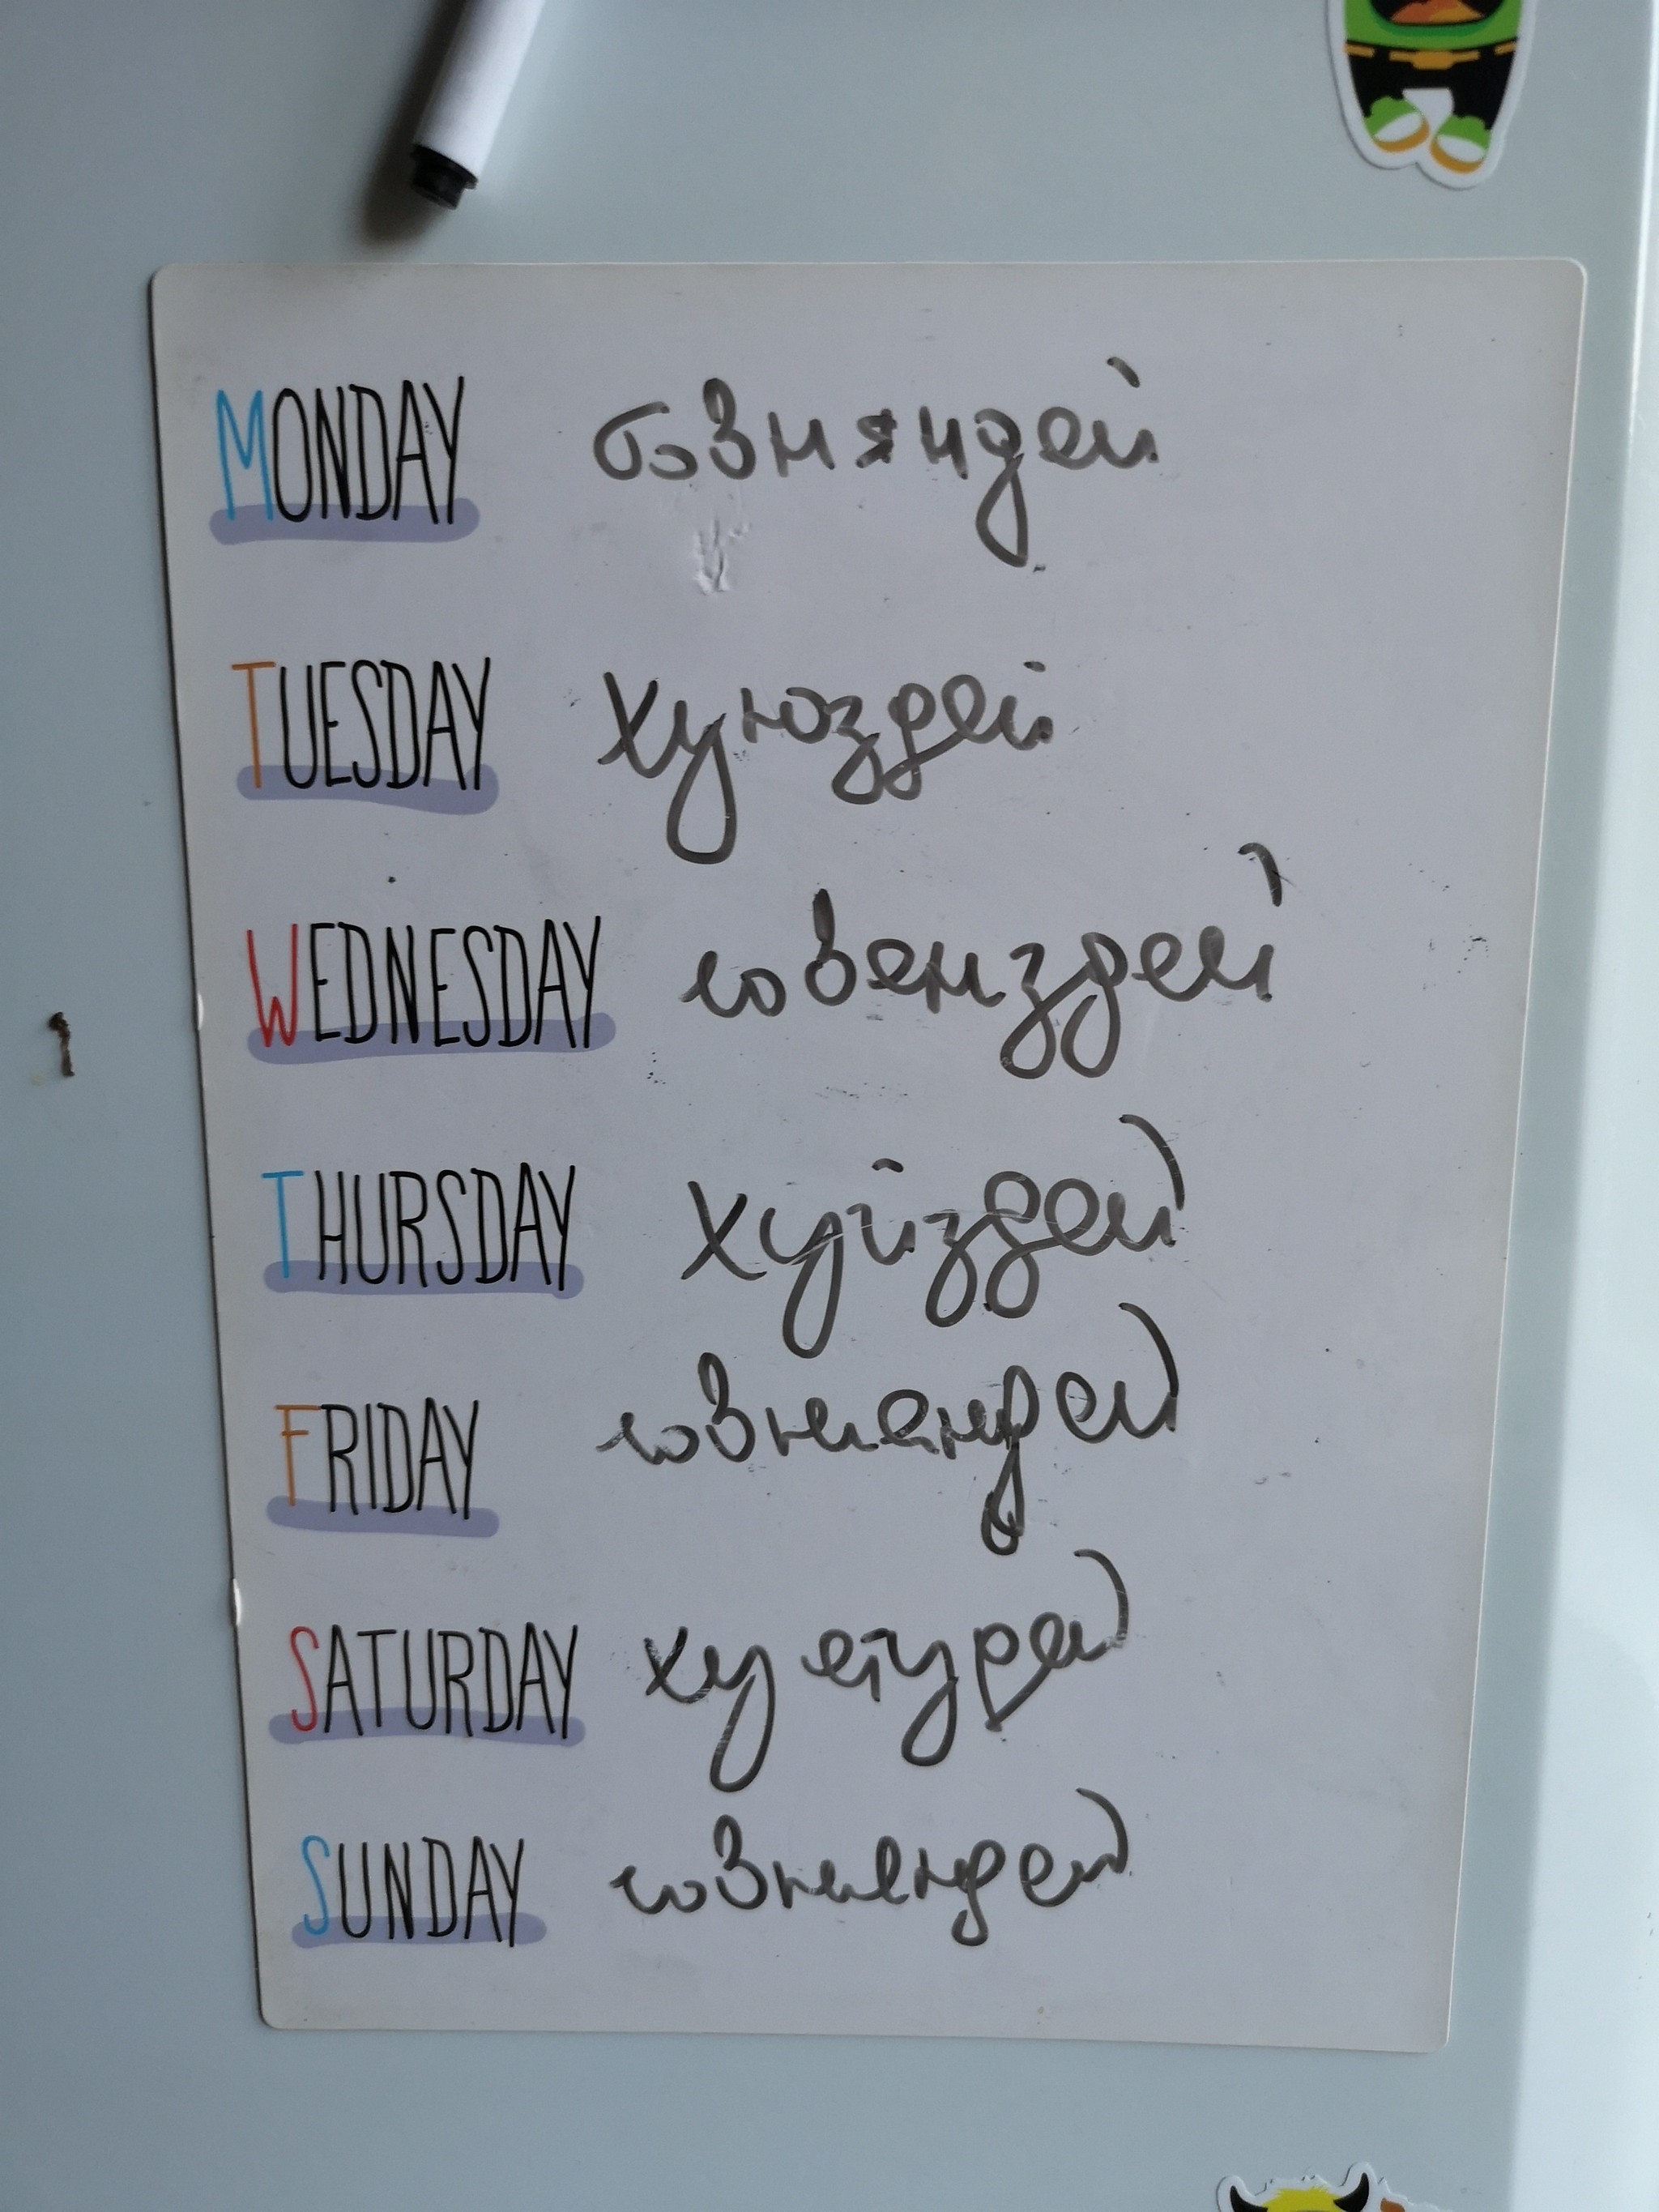 MONDAY говняндей
TUESDAY хуюздей
WEDNESDAY говензздей
THURSDAY хуйздей
FRIDAY говниандей
SATURDAY хуетудей
SUNDAY говнендей